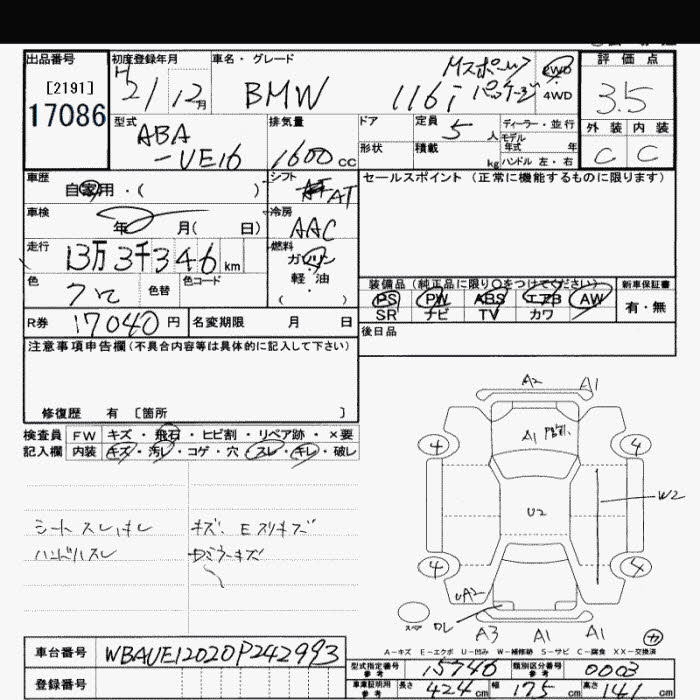 出品番号 初度登録年月 車名・グレード 評価点
[2191] H21 12月 BMW 116i Mスポーツパッケージ 2WD 4WD 3.5
17086
型式 排気量 ドア 定員 5人 ディーラー・並行 外装 内装
ABA-UE16 1600cc 形状 積載 kg モデル年式 年 ハンドル 左・右 C C
車歴 自家用・( ) シフト AT セールスポイント (正常に機能するものに限ります)
車検 年 月( 日) 冷房 AAC
走行 13万3千346km 燃料 ガソリン
軽・油
( )
色 色替 色コード
装備品 (純正品に限り○をつけてください) 新車保証書
PS PW ABS エアB AW 有・無
SR ナビ TV カワ
R券 17040円 名変期限 月 日 後日品
注意事項申告欄(不具合内容等は具体的に記入して下さい)
修復歴 有 [箇所 ]
検査員 FW キズ・飛石・ヒビ割・リペア跡・×要
記入欄 内装 キズ・汚レ・コゲ・穴・スレ・キレ・破レ
シートスレ、キレ キズ、Eスリキズ
ハンドルスレ
A2 A1
A1
4 4
U2 W2
4 4
A2
スペア
A3 A1 A1
A-キズ E-エクボ U-凹み W-補修跡 S-サビ C-腐食 XX-交換済
車台番号 WBAUE12020P242993
型式指定番号 参考 15746 類別区分番号 参考 0003
登録番号 車庫証明用 参考 長さ 424cm 幅 175cm 高さ 141cm